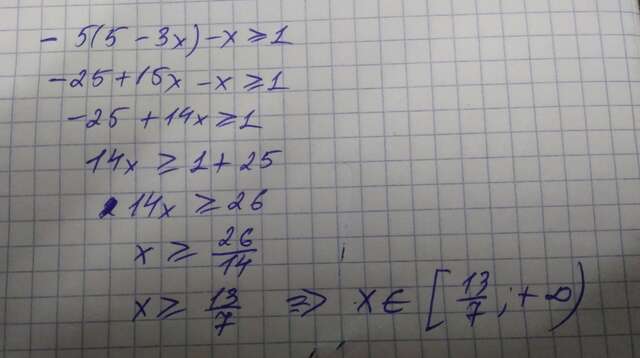 - 5(5 - 3x) - x ≥ 1
-25 + 15x - x ≥ 1
-25 + 14x ≥ 1
14x ≥ 1 + 25
14x ≥ 26
x ≥ 26/14
x ≥ 13/7 ⇒ x ∈ [13/7; +∞)